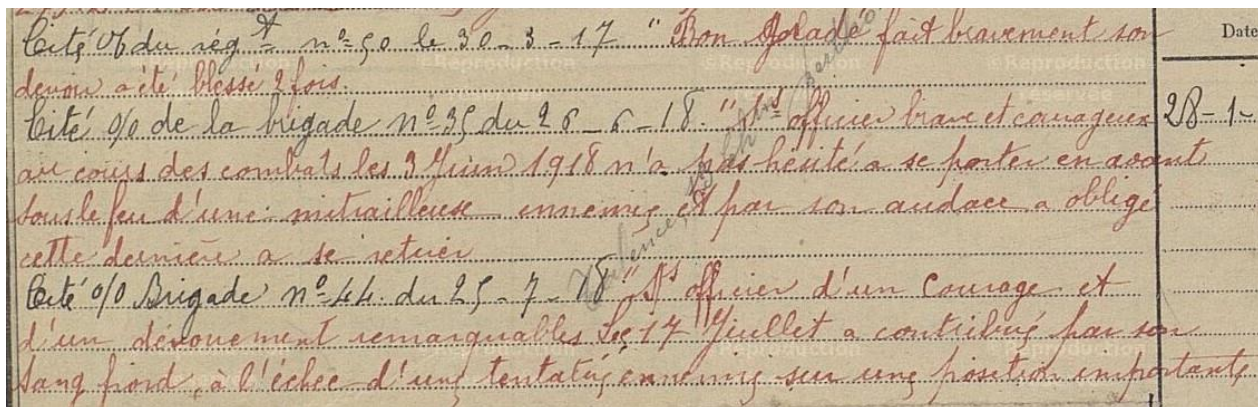 Cité o/o du régt n°=50 le 30-3-17 " Bon gradé fait bravement son
devoir a été blessé 2 fois.
Cité o/o de la brigade n°35 du 26-6-18. " ss officier brave et courageux
au cours des combats les 3 Juin 1918 n'a pas hésité a se porter en avant
sous le feu d'une mitrailleuse ennemie et par son audace a obligé
cette dernière a se retirer
Cité o/o Brigade n°=44. du 25-7-18 " ss officier d'un courage et
d'un dévouement remarquables Le 17 Juillet a contribué par son
sang froid, à l'échec d'une tentative ennemie sur une position importante
Date
28-1-
©Reproduction